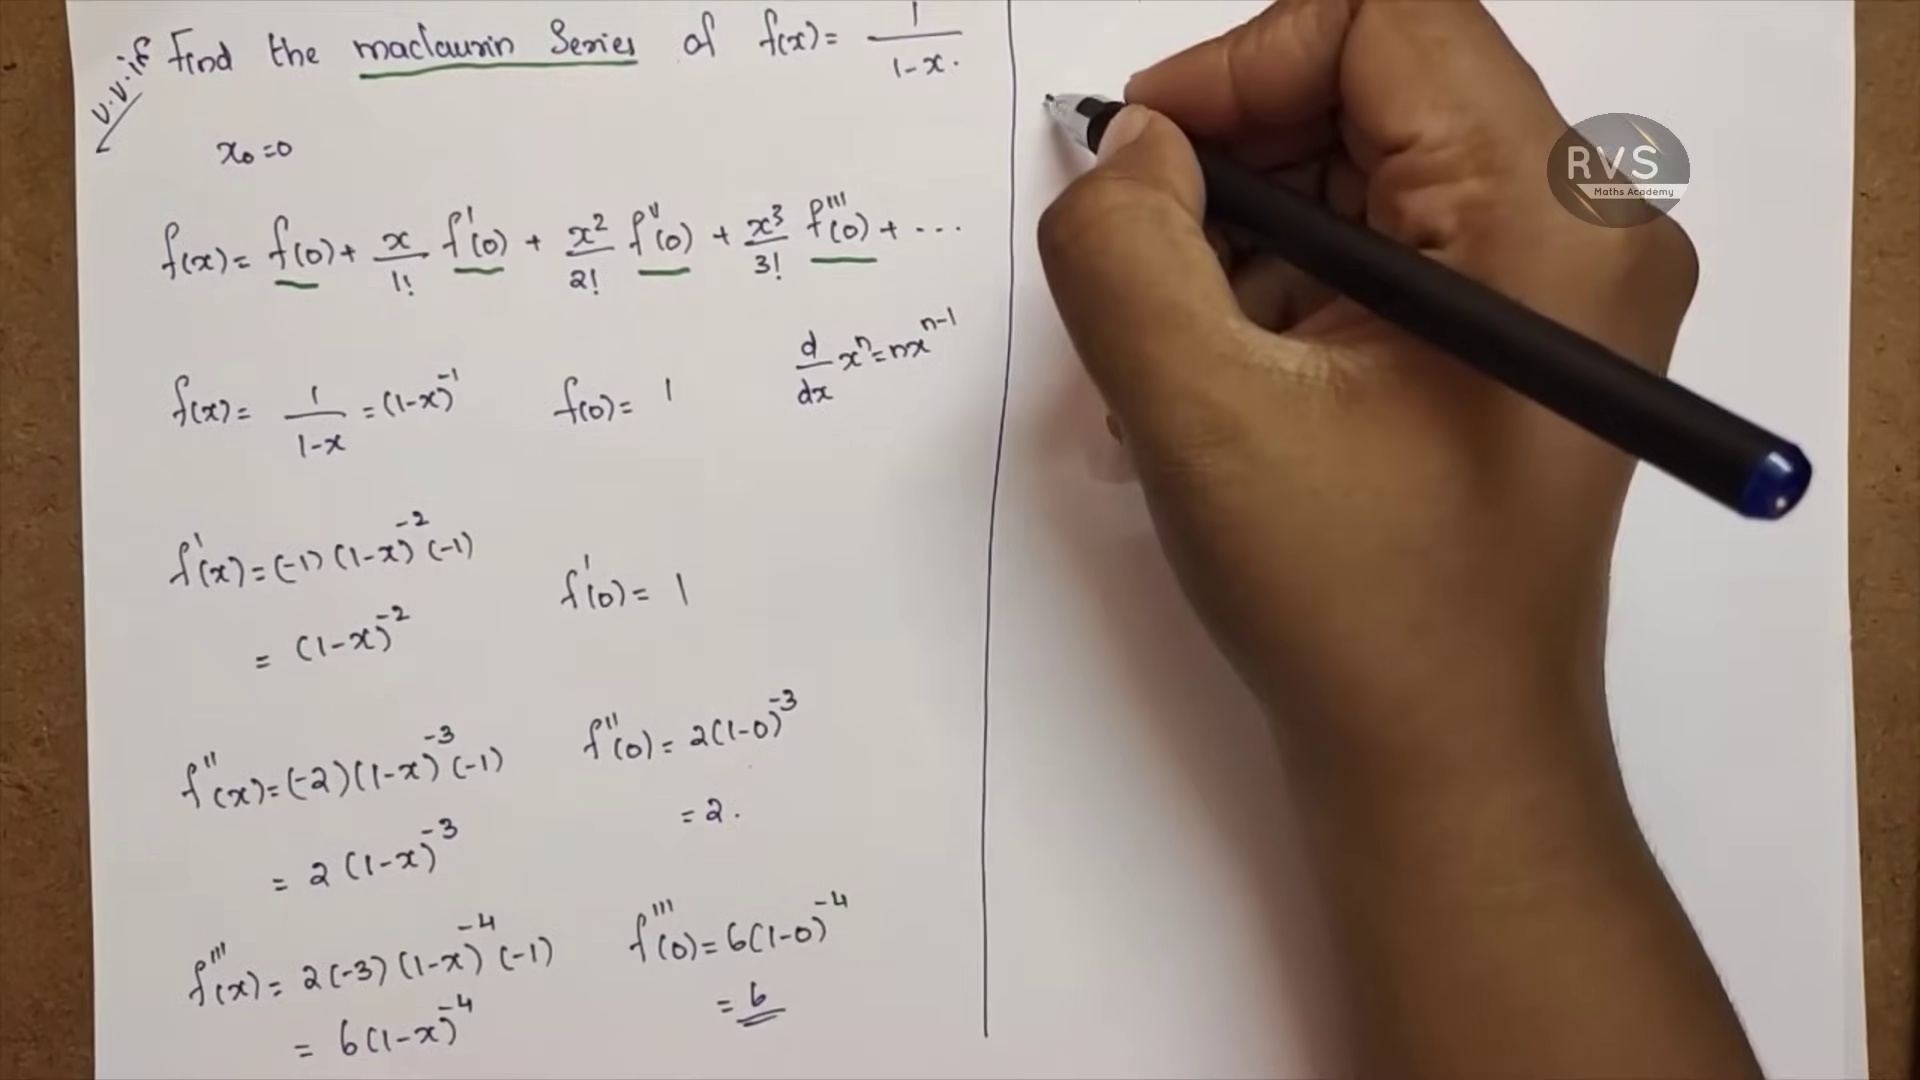 v.v.if
Find the maclaurin Series of f(x) = 1/(1-x).
x₀=0
f(x) = f(0) + x/1! f'(0) + x²/2! f''(0) + x³/3! f'''(0) + ...
d/dx xⁿ = nxⁿ⁻¹
f(x) = 1/(1-x) = (1-x)⁻¹ f(0) = 1
f'(x) = (-1)(1-x)⁻²(-1)
= (1-x)⁻² f'(0) = 1
f''(x) = (-2)(1-x)⁻³(-1) f''(0) = 2(1-0)⁻³
= 2(1-x)⁻³ = 2.
f'''(x) = 2(-3)(1-x)⁻⁴(-1) f'''(0) = 6(1-0)⁻⁴
= 6(1-x)⁻⁴ = 6
RVS
Maths Academy